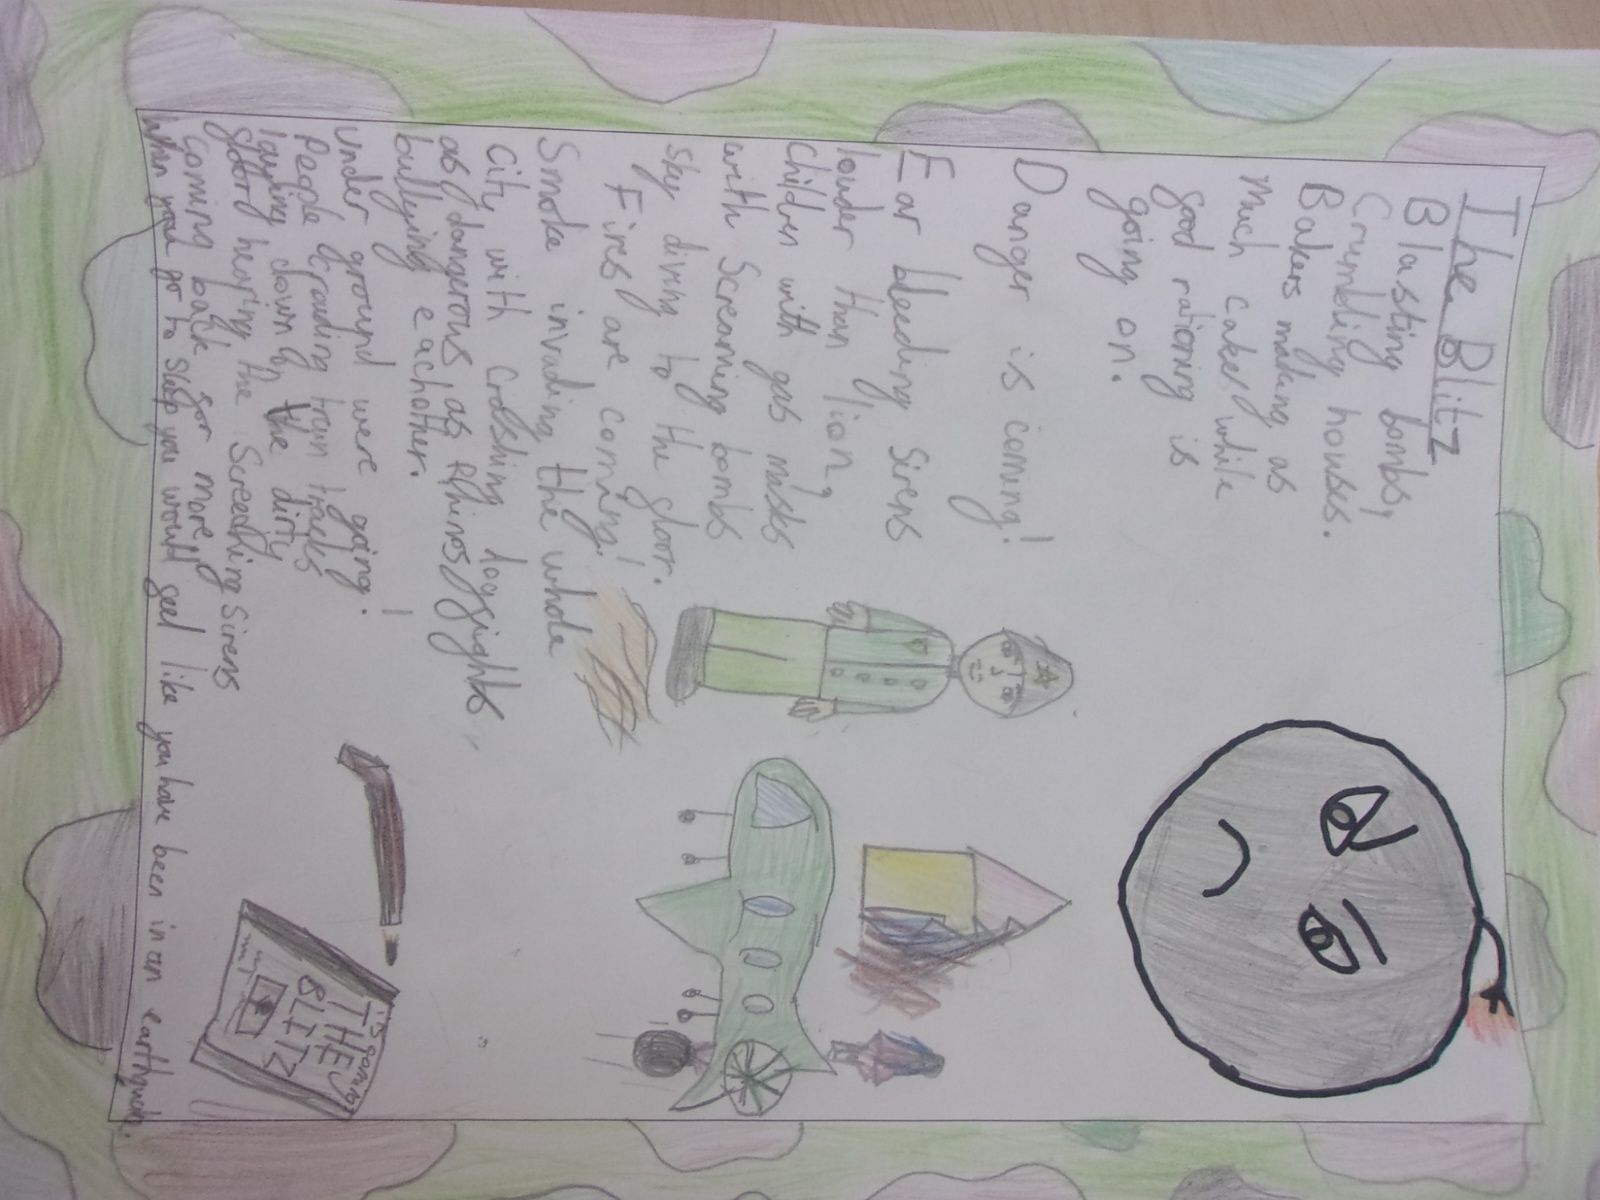 The Blitz
Blasting bombs,
Crumbling houses.
Bakers making as
Much cakes while
food rationing is
going on.
Danger is coming!
Ear bleeding Sirens
louder than lion,
Children with gas masks
with Screaming bombs
sky diving to the floor.
Fires are coming!
Smoke invading the whole
City with crashing dogfights
as dangerous as Rhinos
bullying eachother.
Under ground were going!
People crowding train tracks
laying down on the dirty
floor, hearing the Screeching Sirens
coming back for more,
When you go to sleep you would feel like you have been in an earthquake.
THE
BLITZ